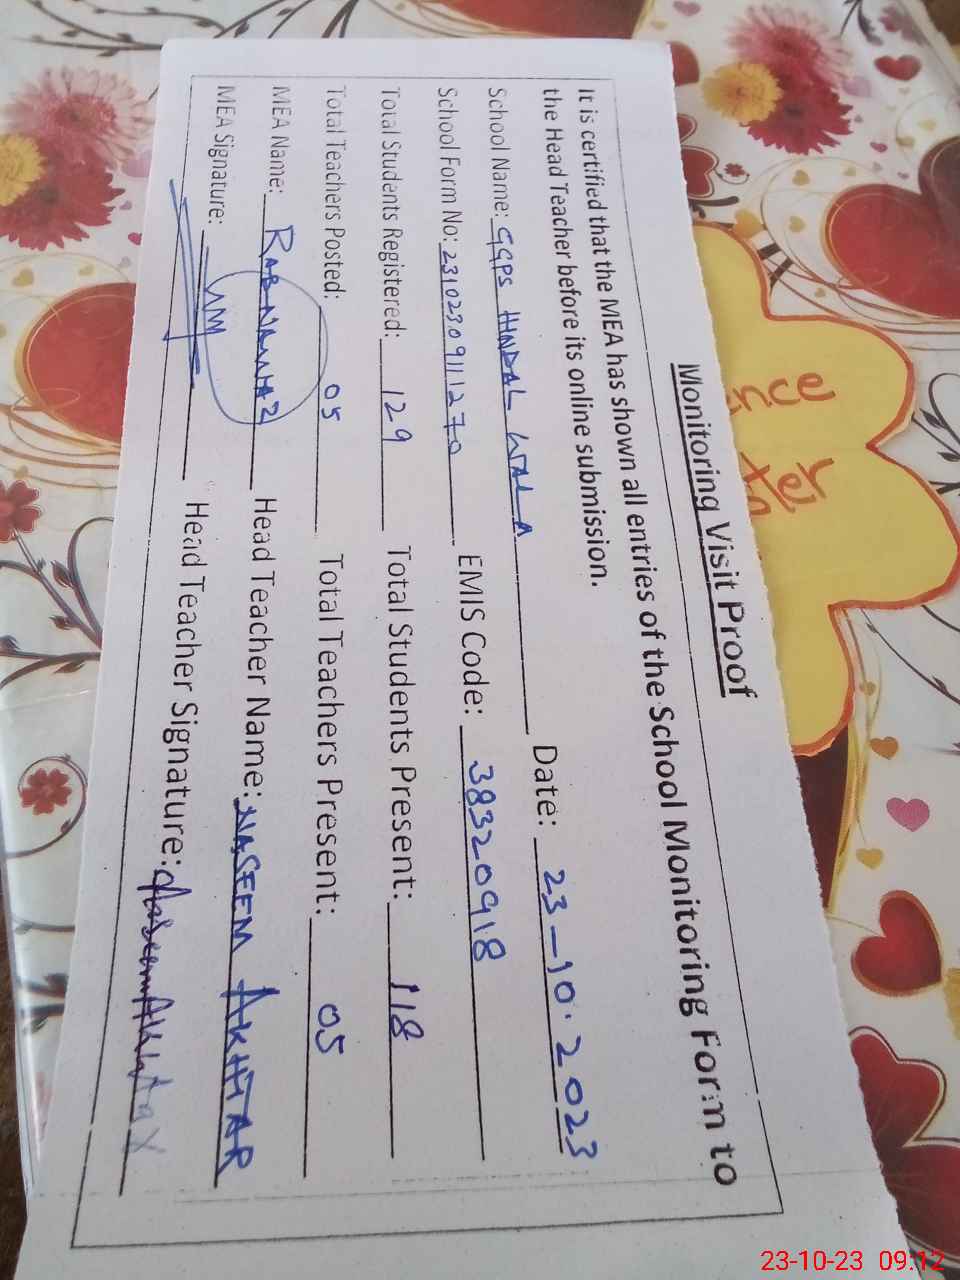 Monitoring Visit Proof
It is certified that the MEA has shown all entries of the School Monitoring Form to
the Head Teacher before its online submission.
School Name: GGPS HNDAL WALA Date: 23-10-2023
School Form No: 2310230911270 EMIS Code: 38320918
Total Students Registered: 129 Total Students Present: 118
Total Teachers Posted: 05 Total Teachers Present: 05
MEA Name: RAB NAWAZ Head Teacher Name: NASEEM AKHTAR
MEA Signature: Head Teacher Signature: Naseem Akhtar
nce
ter
23-10-23 09:12